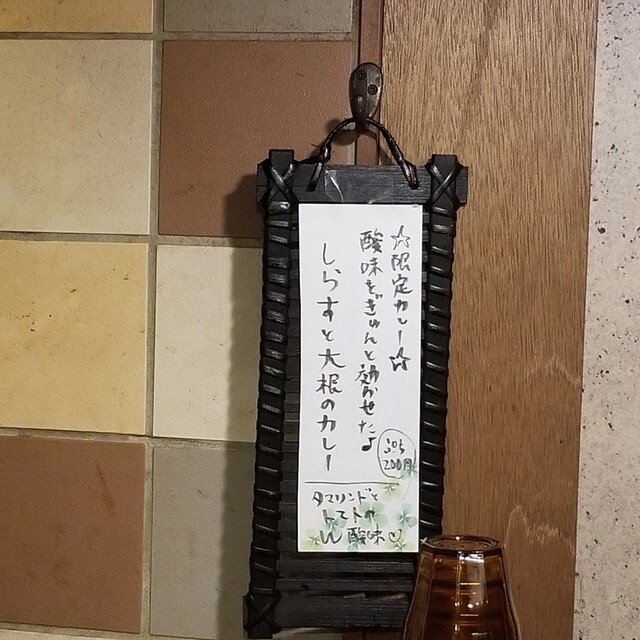 ☆限定カレー☆
酸味をぎゅんと効かせた♪
しらすと大根のカレー
ぷち
200円
タマリンドと
トマトの
W酸味♡